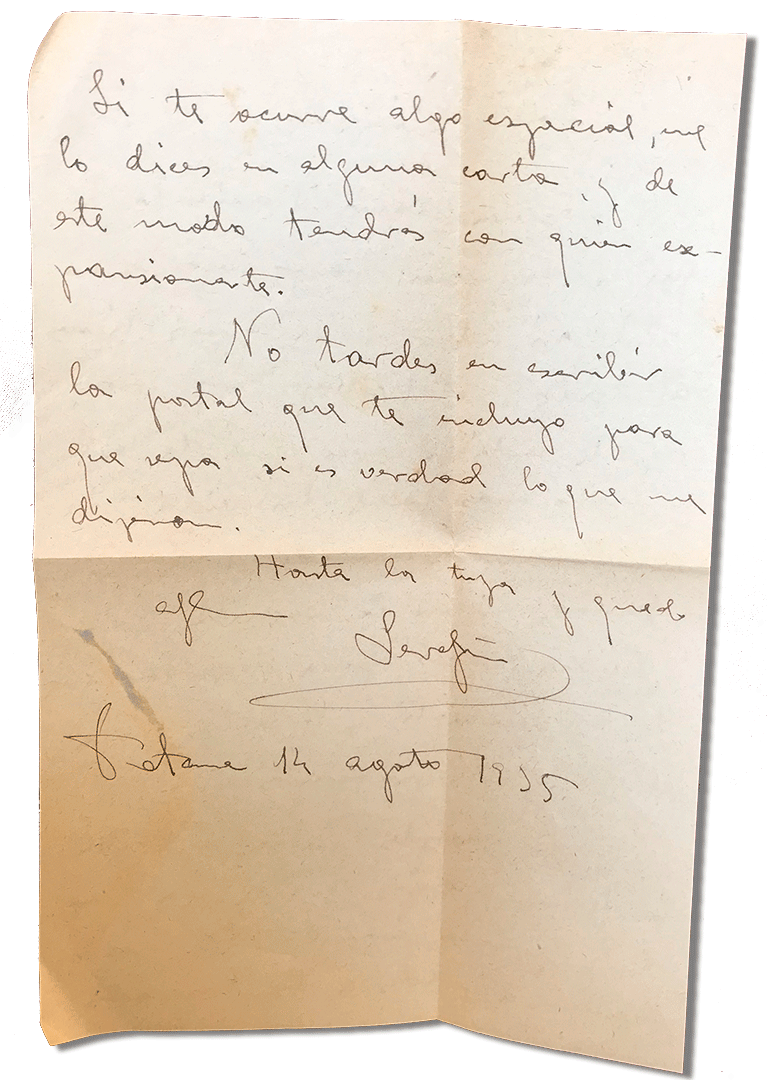 Si te ocurre algo especial, me
lo dices en alguna carta, y de
este modo tendrás con quien ex-
pansionarte.
No tardes en escribir
la postal que te incluyo para
que sepa si es verdad lo que me
dijeron.
Hasta la tuya y quedo
Serafín
14 agosto 1935